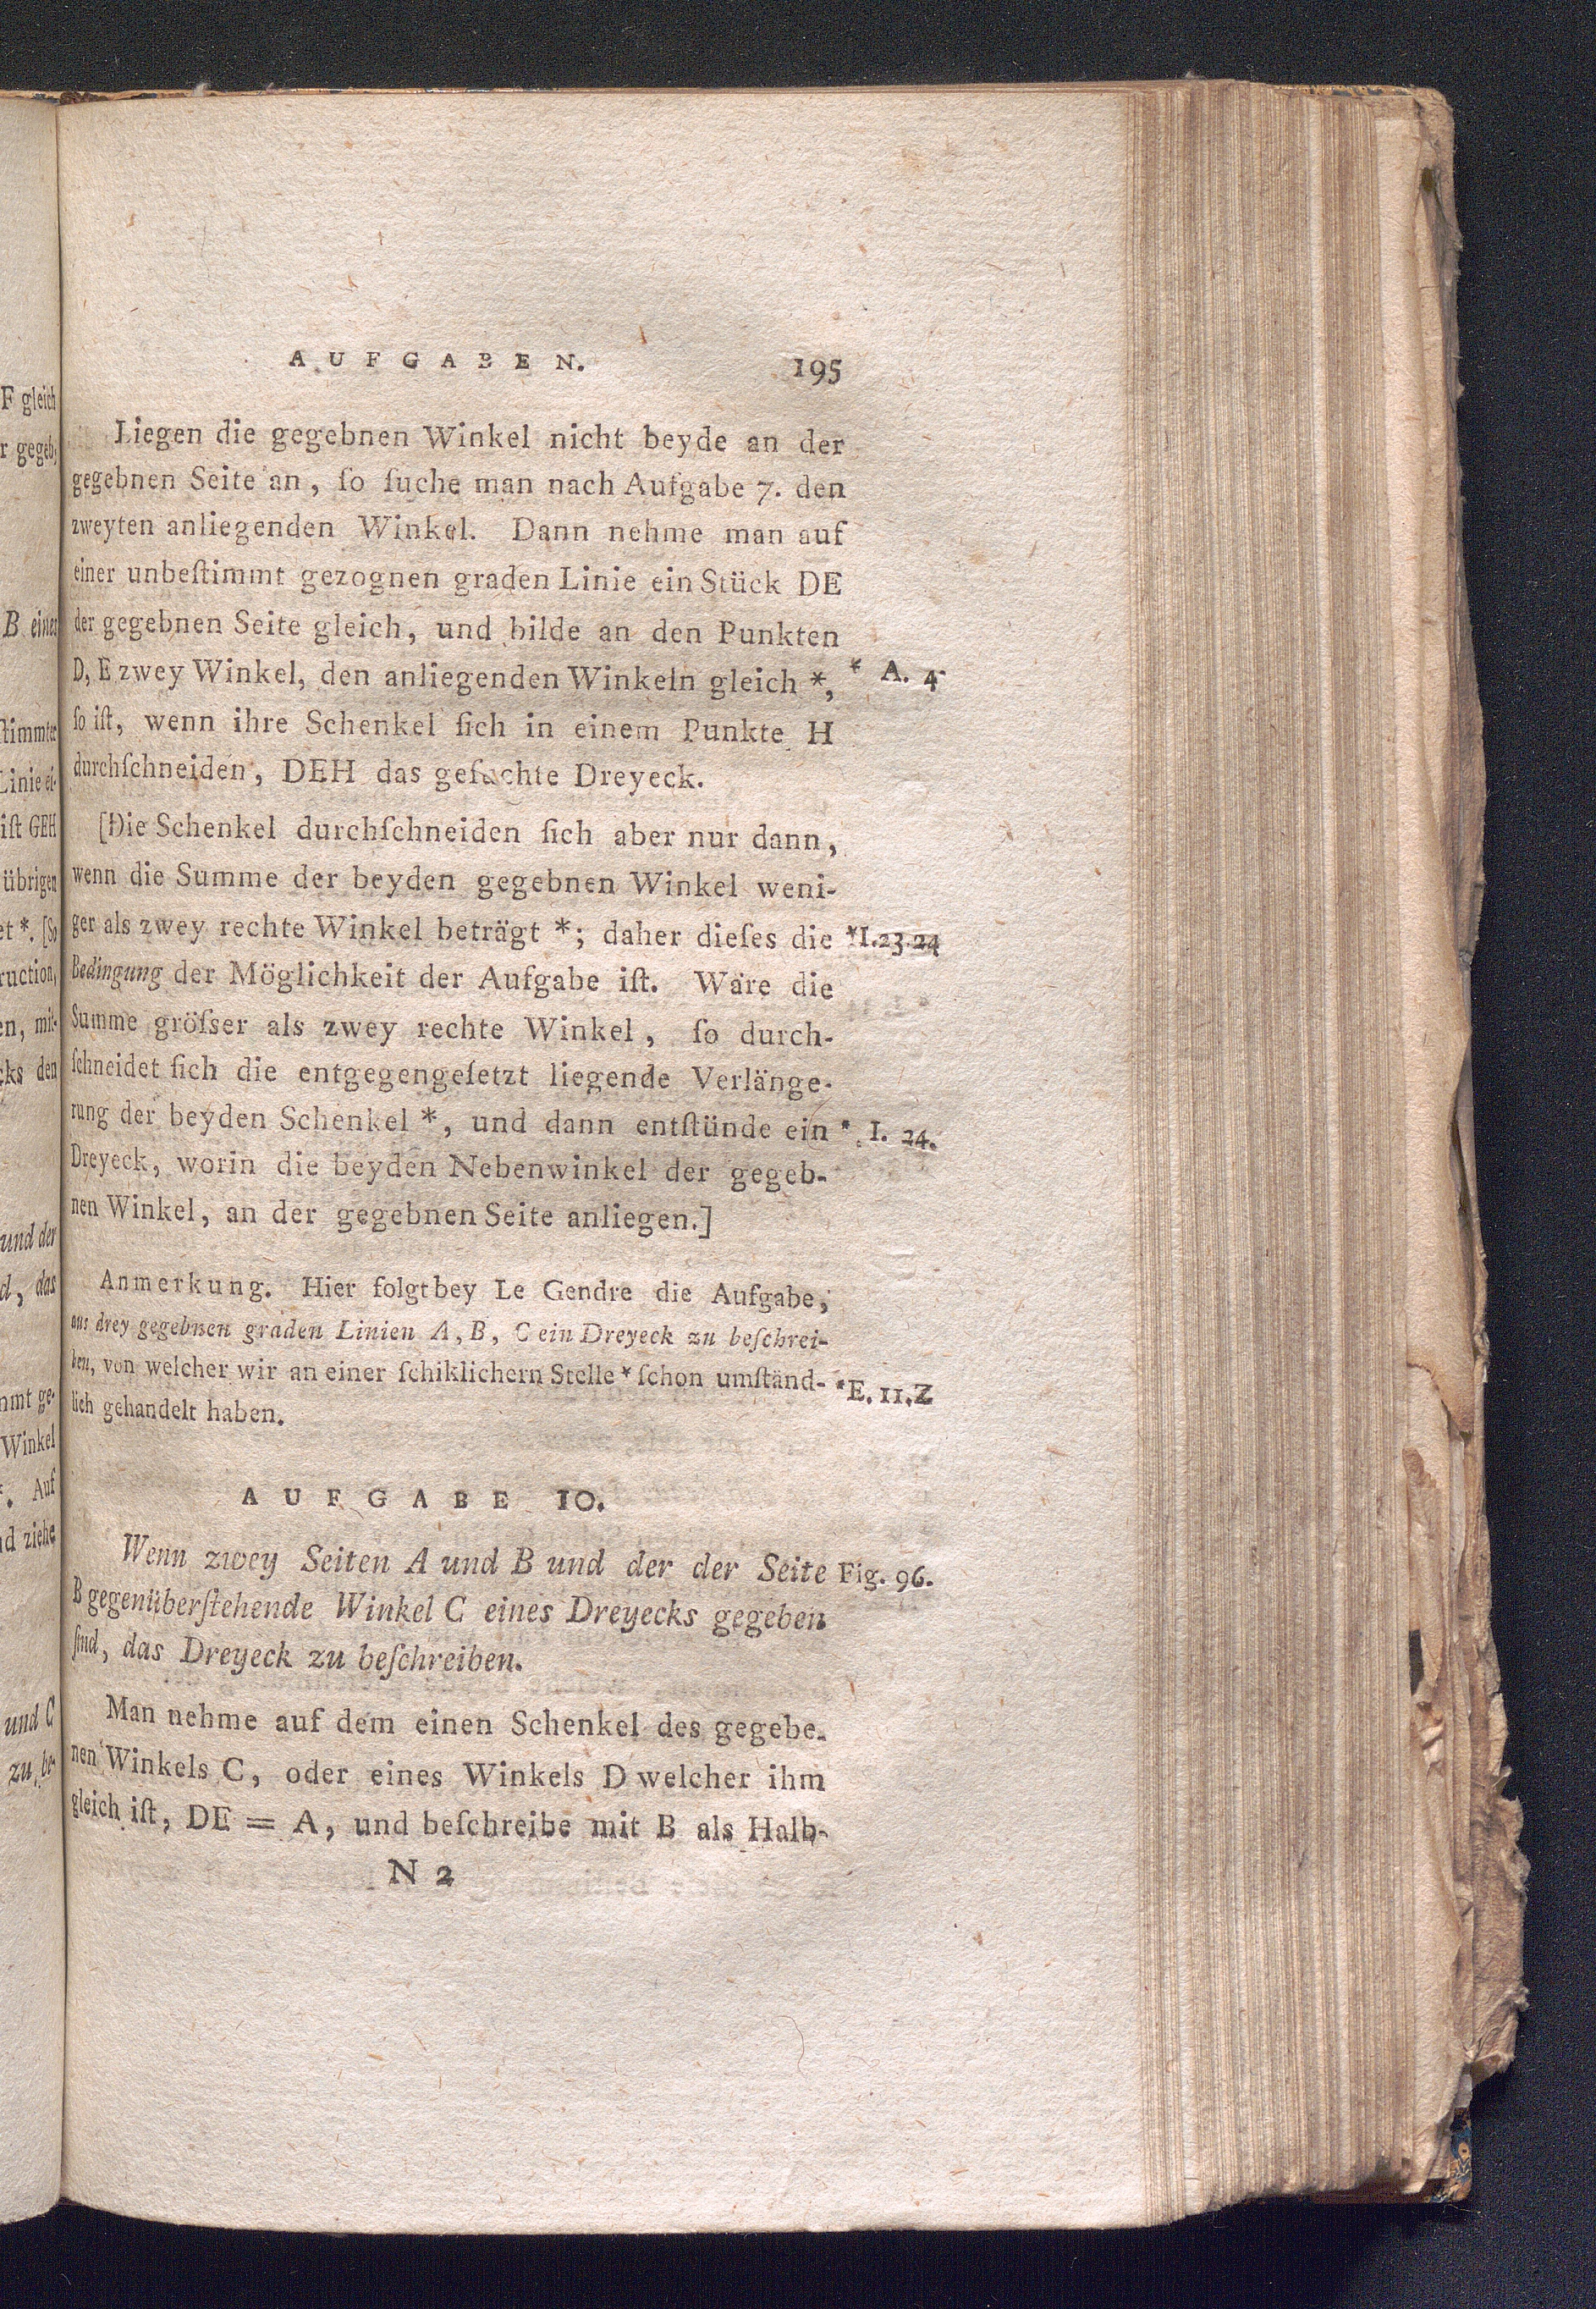 AUFGABEN. 195
Liegen die gegebnen Winkel nicht beyde an der
gegebnen Seite an, ſo ſuche man nach Aufgabe 7. den
zweyten anliegenden Winkel. Dann nehme man auf
einer unbeſtimmt gezognen graden Linie ein Stück DE
der gegebnen Seite gleich, und bilde an den Punkten
D, E zwey Winkel, den anliegenden Winkeln gleich *, * A. 4
ſo iſt, wenn ihre Schenkel ſich in einem Punkte H
durchſchneiden, DEH das geſuchte Dreyeck.
[Die Schenkel durchſchneiden ſich aber nur dann,
wenn die Summe der beyden gegebnen Winkel weni-
ger als zwey rechte Winkel beträgt *; daher dieſes die *I.23.24
Bedingung der Möglichkeit der Aufgabe iſt. Wäre die
Summe gröſser als zwey rechte Winkel, ſo durch-
ſchneidet ſich die entgegengeſetzt liegende Verlänge-
rung der beyden Schenkel *, und dann entſtünde ein * I. 24.
Dreyeck, worin die beyden Nebenwinkel der gegeb-
nen Winkel, an der gegebnen Seite anliegen.]
Anmerkung. Hier folgt bey Le Gendre die Aufgabe,
aus drey gegebnen graden Linien A, B, C ein Dreyeck zu beſchrei-
ben, von welcher wir an einer ſchiklichern Stelle * ſchon umſtänd- *E. 11.Z
lich gehandelt haben.
AUFGABE 10.
Wenn zwey Seiten A und B und der der Seite Fig. 96.
B gegenüberſtehende Winkel C eines Dreyecks gegeben
ſind, das Dreyeck zu beſchreiben.
Man nehme auf dem einen Schenkel des gegebe-
nen Winkels C, oder eines Winkels D welcher ihm
gleich iſt, DE = A, und beſchreibe mit B als Halb-
N 2